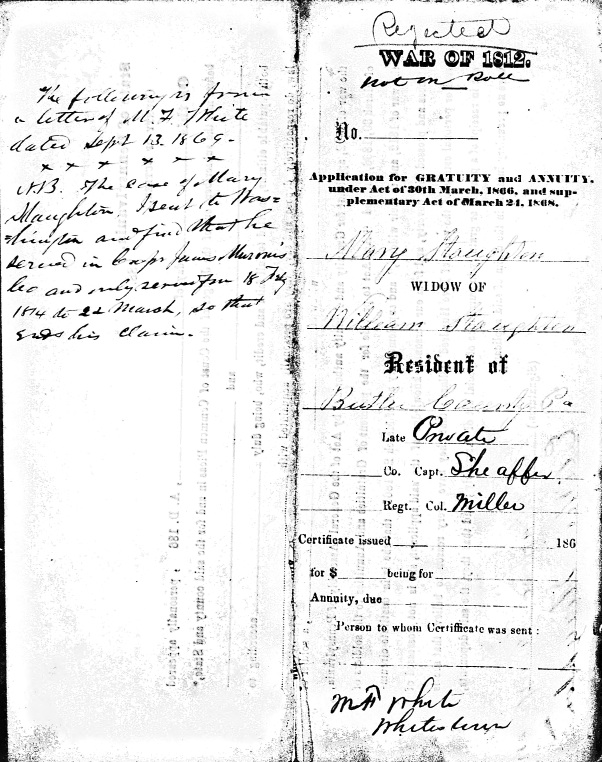 The following is from
a letter of M. F. White
dated Sept 13. 1869-
x x x x x x
N.B. The case of Mary
Staughton, I sent to Was=
=hington and find that he
served in Capt James
Co and only served from 18 Feby
1814 to 22 March, so that
ends his claim.
Rejected
WAR OF 1812.
not on Roll
No.
Application for GRATUITY and ANNUITY,
under Act of 30th March, 1866, and sup-
plementary Act of March 24, 1868.
Mary Staughton
WIDOW OF
William Staughton
Resident of
Butler County Pa
Late Private
Co. Capt. Sheaffer
Regt. Col. Miller
Certificate issued 186
for $ being for
Annuity, due
Person to whom Certificate was sent:
M F White
Whitestown